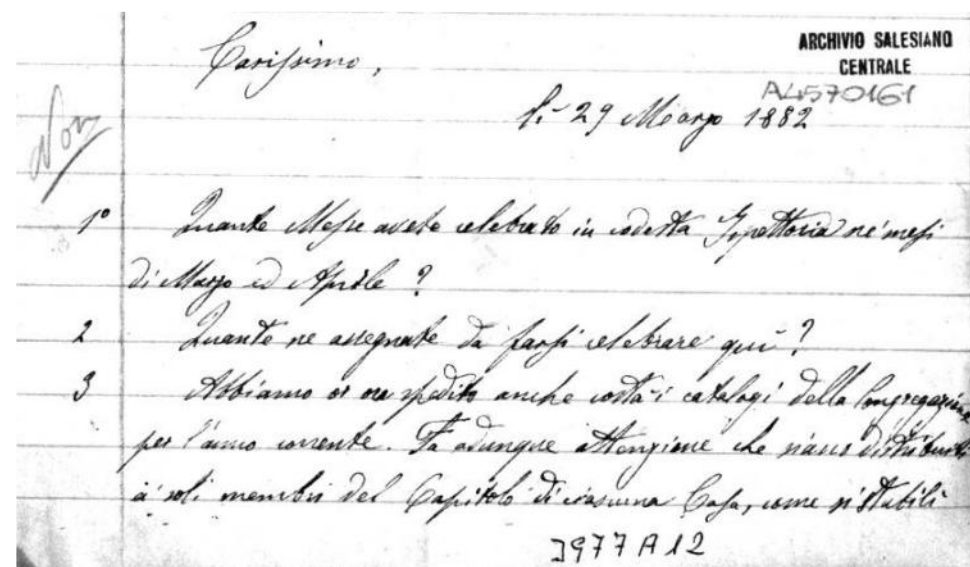 ARCHIVIO SALESIANO
CENTRALE
A4570161
Carissimo,
li 29 Marzo 1882
Non
1° Quante Messe avete celebrato in codesta Ispettoria ne' mesi
di Marzo ed Aprile ?
2 Quante ne assegnate da farsi celebrare qui ?
3 Abbiamo or ora spedito anche costà i catalogi della Congregazione
per l'anno corrente. Fa adunque attenzione che siano distribuiti
a' soli membri del Capitolo di ciascuna Casa, come si stabilì
3977 A 12